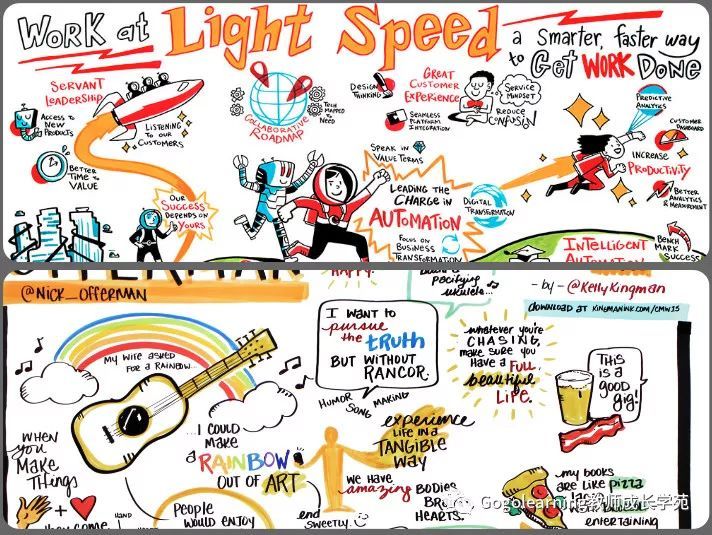 WORK at Light Speed
a Smarter, faster way
to Get WORK DONE
SERVANT
LEADERSHIP
ACCESS TO
NEW
PRODUCTS
LISTENING
TO OUR
CUSTOMERS
BETTER
TIME TO
VALUE
OUR
SUCCESS
DEPENDS ON
YOURS
COLLABORATIVE
ROADMAP
TECH
MAPPED
TO
NEED
DESIGN
THINKING
GREAT
CUSTOMER
EXPERIENCE
SERVICE
MINDSET
REDUCE
CONFUSION
SEAMLESS
PLATFORM
INTEGRATION
SPEAK IN
VALUE TERMS
LEADING THE
CHARGE IN
AUTOMATION
DIGITAL
TRANSFORMATION
FOCUS ON
BUSINESS
TRANSFORMATION
PREDICTIVE
ANALYTICS
CUSTOMER
DASHBOARD
INCREASE
PRODUCTIVITY
BETTER
ANALYTICS
& MEASUREMENT
INTELLIGENT
AUTOMATION
BENCH
MARK
SUCCESS
OFFERMAN
@NICK_OFFERMAN
HAPPY.
pacifying
ukulele...
- by - @KellyKingman
DOWNLOAD AT KINGMANINK.COM/CMW15
MY WIFE ASKED
FOR A RAINBOW...
I WANT TO
pursue
the truth
BUT WITHOUT
RANCOR.
HUMOR SONG MAKING
whatever you're
CHASING,
make sure you
Have a FULL,
beautiful
LIFE.
THIS
is a
good
gig!
WHEN
you
MAKE
THINGS
...I COULD
MAKE
a RAINBOW
OUT OF ART
experience
LIFE IN a
TANGIBLE
WAY
WE HAVE
amazing BODIES
HEARTS.
HAND
People
WOULD ENJOY
end
SWEETLY.
my books
are like pizza
entertaining
Gogolearning教师成长学苑